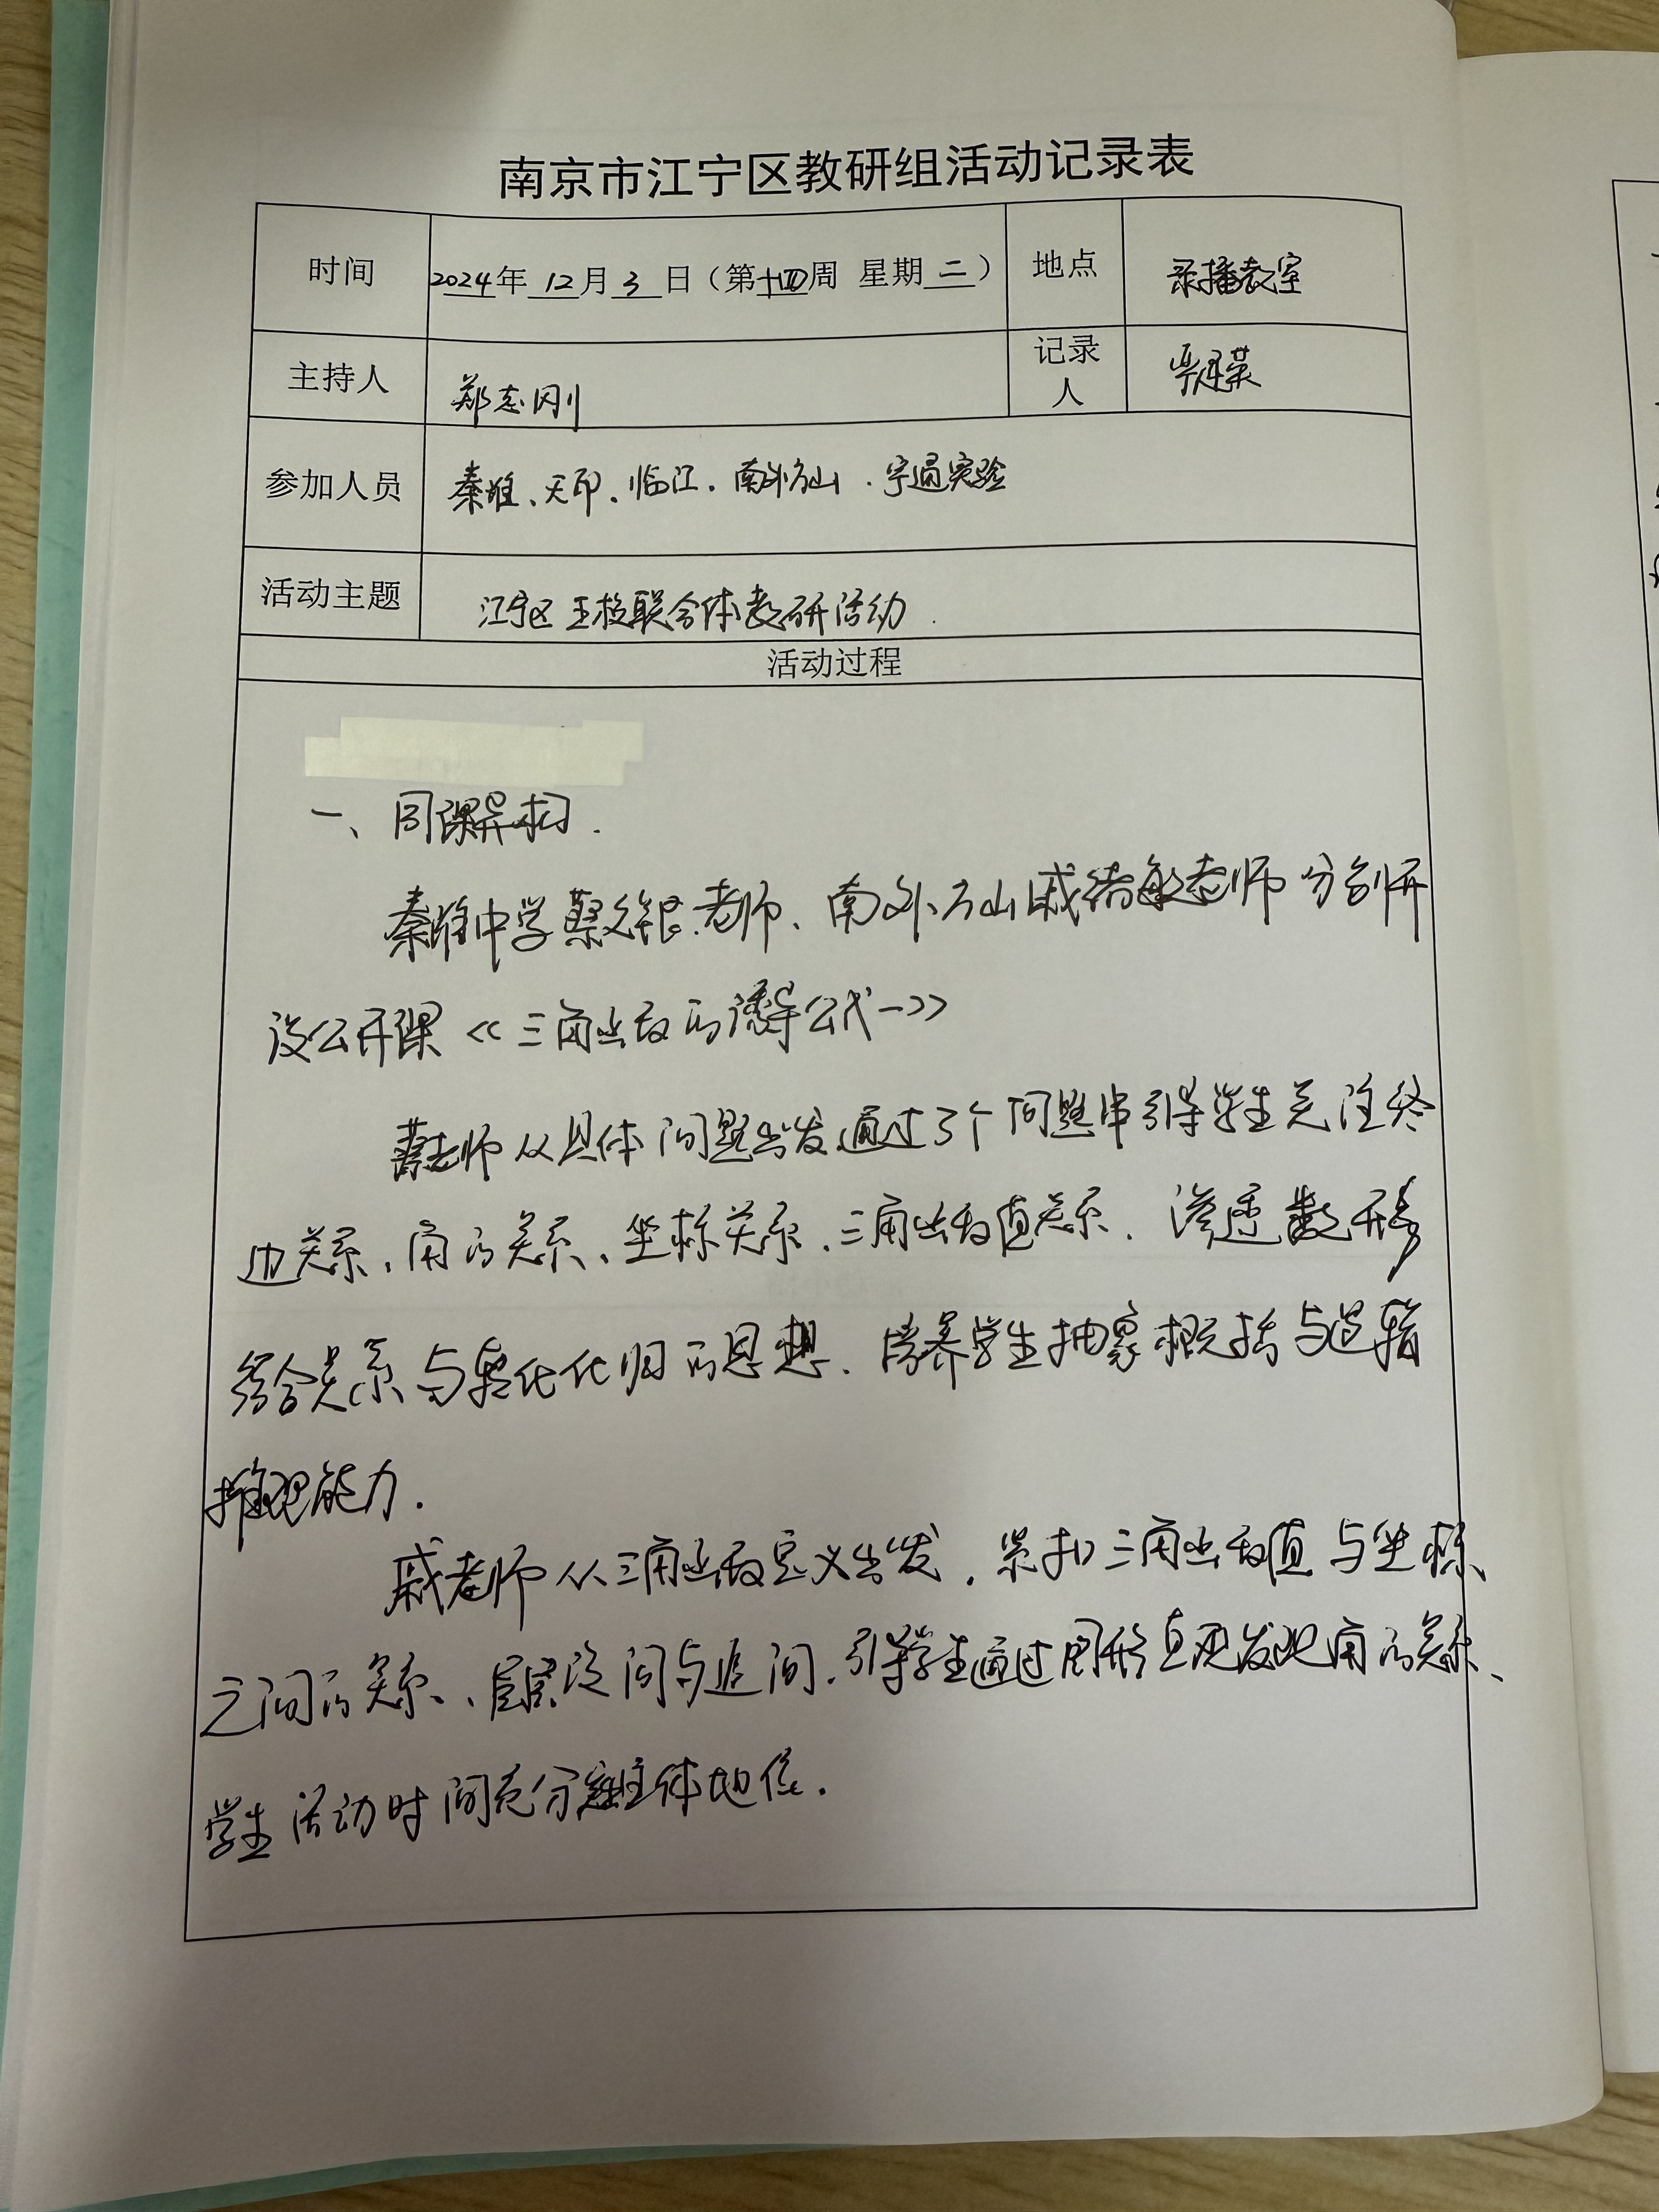 南京市江宁区教研组活动记录表
时间 2024年 12月 3 日（第十四周 星期 二） 地点 录播教室
主持人 郑志刚 记录人
参加人员 秦淮、天印、临江、南外方山、宁通实验
活动主题 江宁区五校联合体教研活动
活动过程
一、同课异构.
秦淮中学蔡 老师、南外方山戚绪敏老师分别开
设公开课《三角函数的诱导公式一》
蔡老师从具体问题出发通过了个问题串引导学生关注终
边关系、角的关系、坐标关系、三角函数值关系、渗透数形
结合关系与转化化归的思想、培养学生抽象概括与逻辑
推理能力.
戚老师从三角函数定义出发,紧扣三角函数值与坐标
之间的关系、层层设问与追问,引导学生通过图形直观发现角的关系、
学生活动时间充分 主体地位.